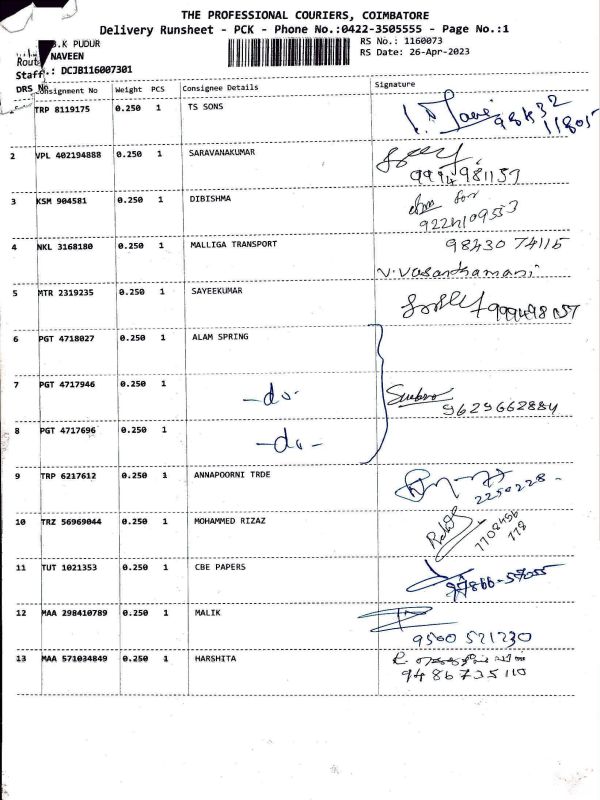 THE PROFESSIONAL COURIERS, COIMBATORE
Delivery Runsheet - PCK - Phone No.:0422-3505555 - Page No.:1
.K PUDUR RS No.: 1160073
Route NAVEEN RS Date: 26-Apr-2023
Staff.: DCJB116007301
DRS No Consignment No Weight PCS Consignee Details Signature
TRP 8119175 0.250 1 TS SONS
11805
2 VPL 402194888 0.250 1 SARAVANAKUMAR
9994981157
3 KSM 904581 0.250 1 DIBISHMA for
4 NKL 3168180 0.250 1 MALLIGA TRANSPORT 98430 74115
V.Vasanthamani
5 MTR 2319235 0.250 1 SAYEEKUMAR
6 PGT 4718027 0.250 1 ALAM SPRING
7 PGT 4717946 0.250 1 -do-
9629662884
8 PGT 4717696 0.250 1 -do-
9 TRP 6217612 0.250 1 ANNAPOORNI TRDE
2250228-
10 TRZ 56969044 0.250 1 MOHAMMED RIZAZ
7708456
778
11 TUT 1021353 0.250 1 CBE PAPERS
12 MAA 298410789 0.250 1 MALIK
9500 521230
13 MAA 571034849 0.250 1 HARSHITA
9486735110